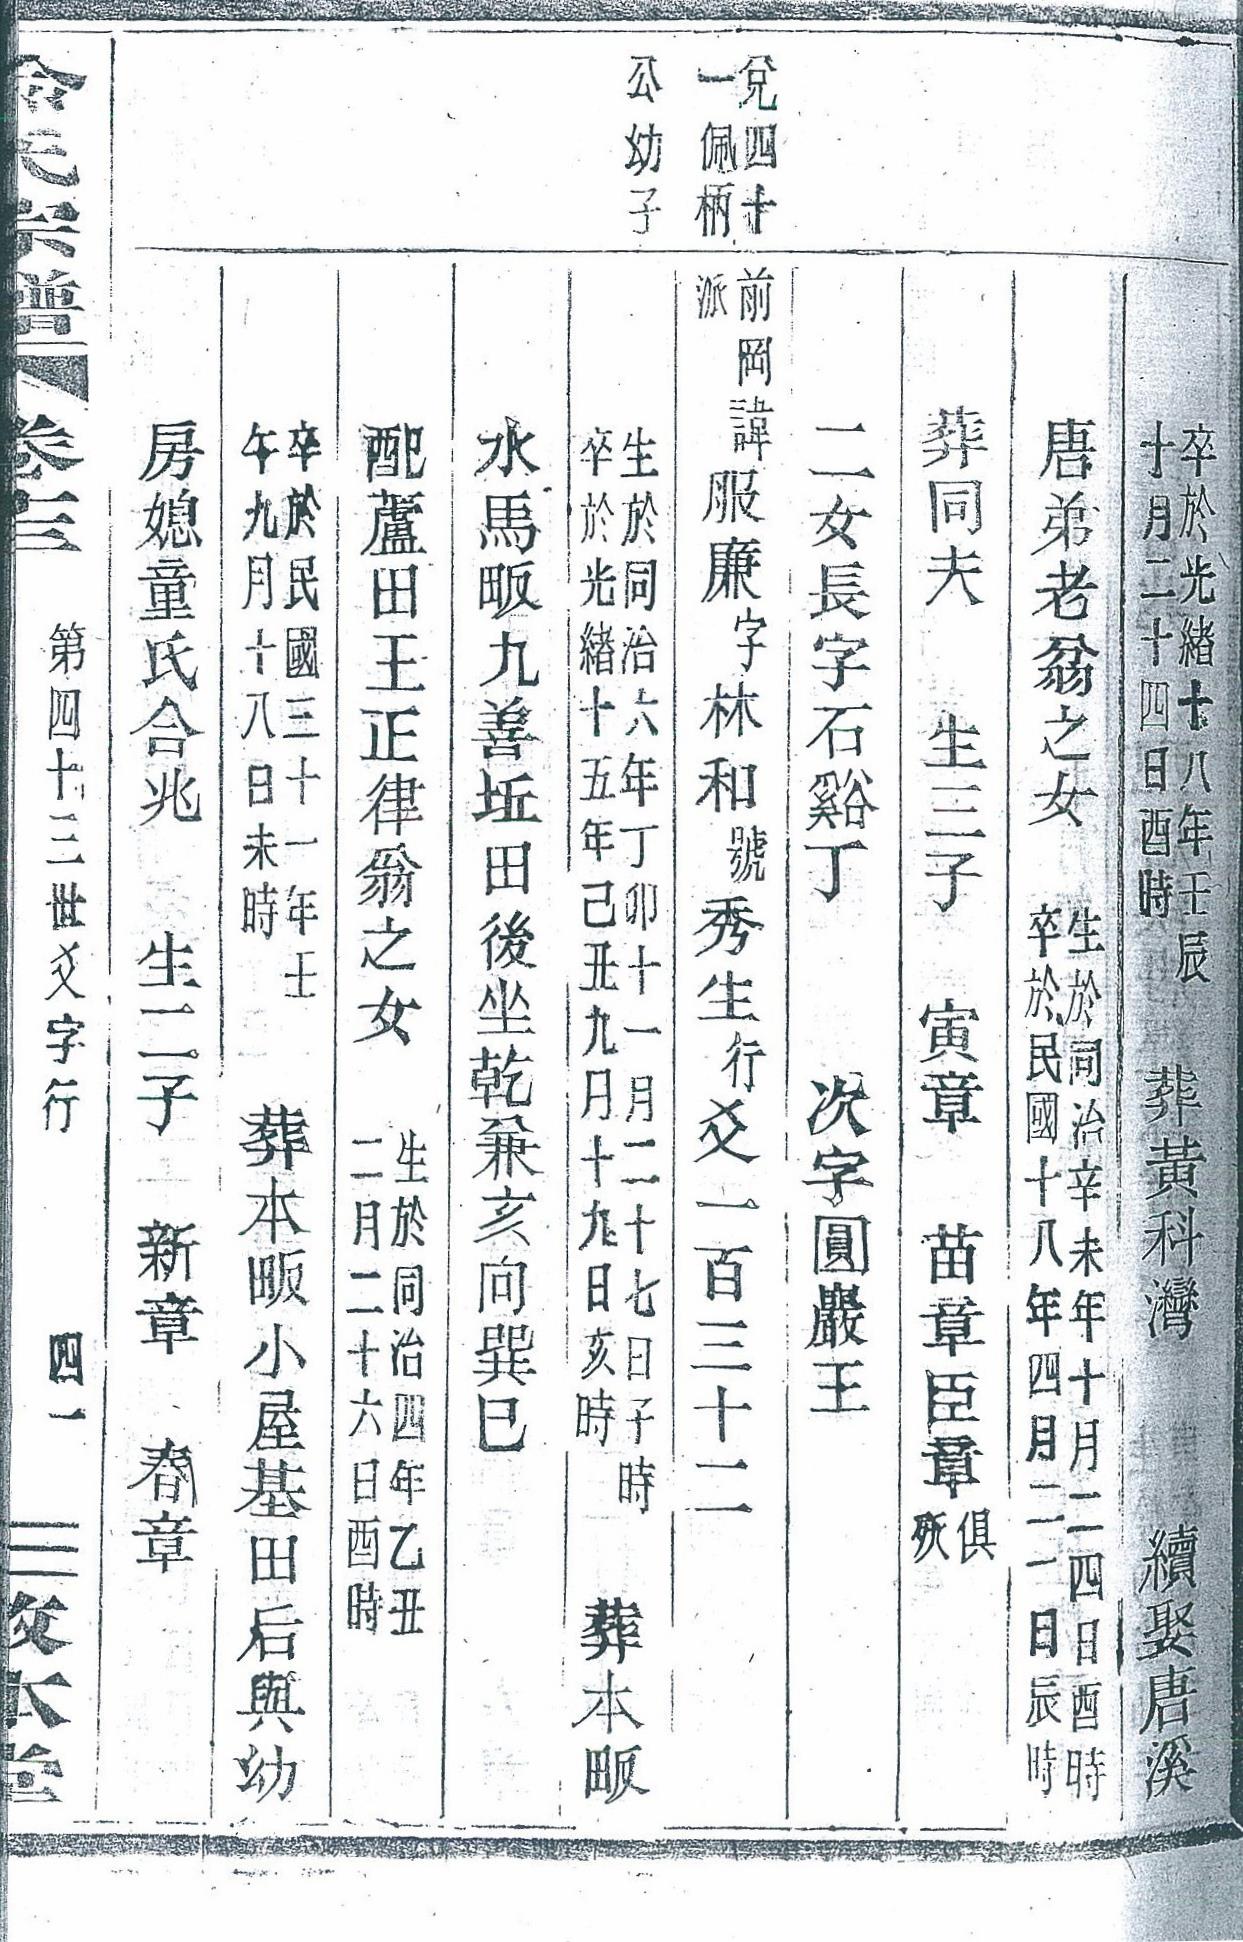 卒於光緒十八年壬辰
十月二十四日酉時
葬黃科灣 續娶唐溪
唐弟老翁之女
生於同治辛未年十月二四日酉時
卒於民國十八年四月二一日辰時
葬同夫 生三子 寅章 苗章臣章
俱
殀
二女長字石谿丁 次字圓巖王
兌四十
一佩柄
公幼子
前岡
派
諱服廉字林和號秀生行爻一百三十二
生於同治六年丁卯十一月二十七日子時
卒於光緒十五年己丑九月十九日亥時
葬本畈
水馬畈九善坵田後坐乾兼亥向巽巳
配蘆田王正律翁之女
生於同治四年乙丑
二月二十六日酉時
卒於民國三十一年壬
午九月十八日未時
葬本畈小屋基田后與幼
房媳童氏合兆 生二子 新章 春章
氏宗譜 卷三 第四十三世爻字行 四一 敦本堂